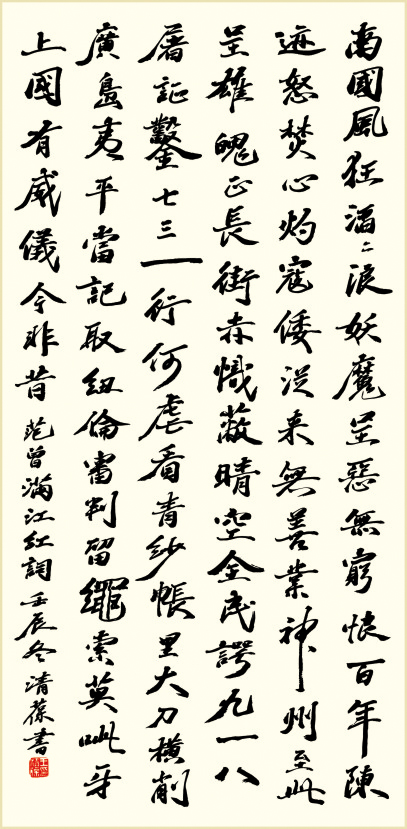 南國風狂滔〻浪妖魔呈惡無窮恨百年陳
迹怒焚心灼寇倭從来無善業神州至此
呈雄魄正長街赤幟蔽晴空全民諤九一八
屠証鑿七三一行何虐看青紗帳里大刀橫削
廣島夷平當記取紐倫審判留繩索莫呲牙
上國有威儀今非昔 范曾滿江紅詞壬辰冬清葆書